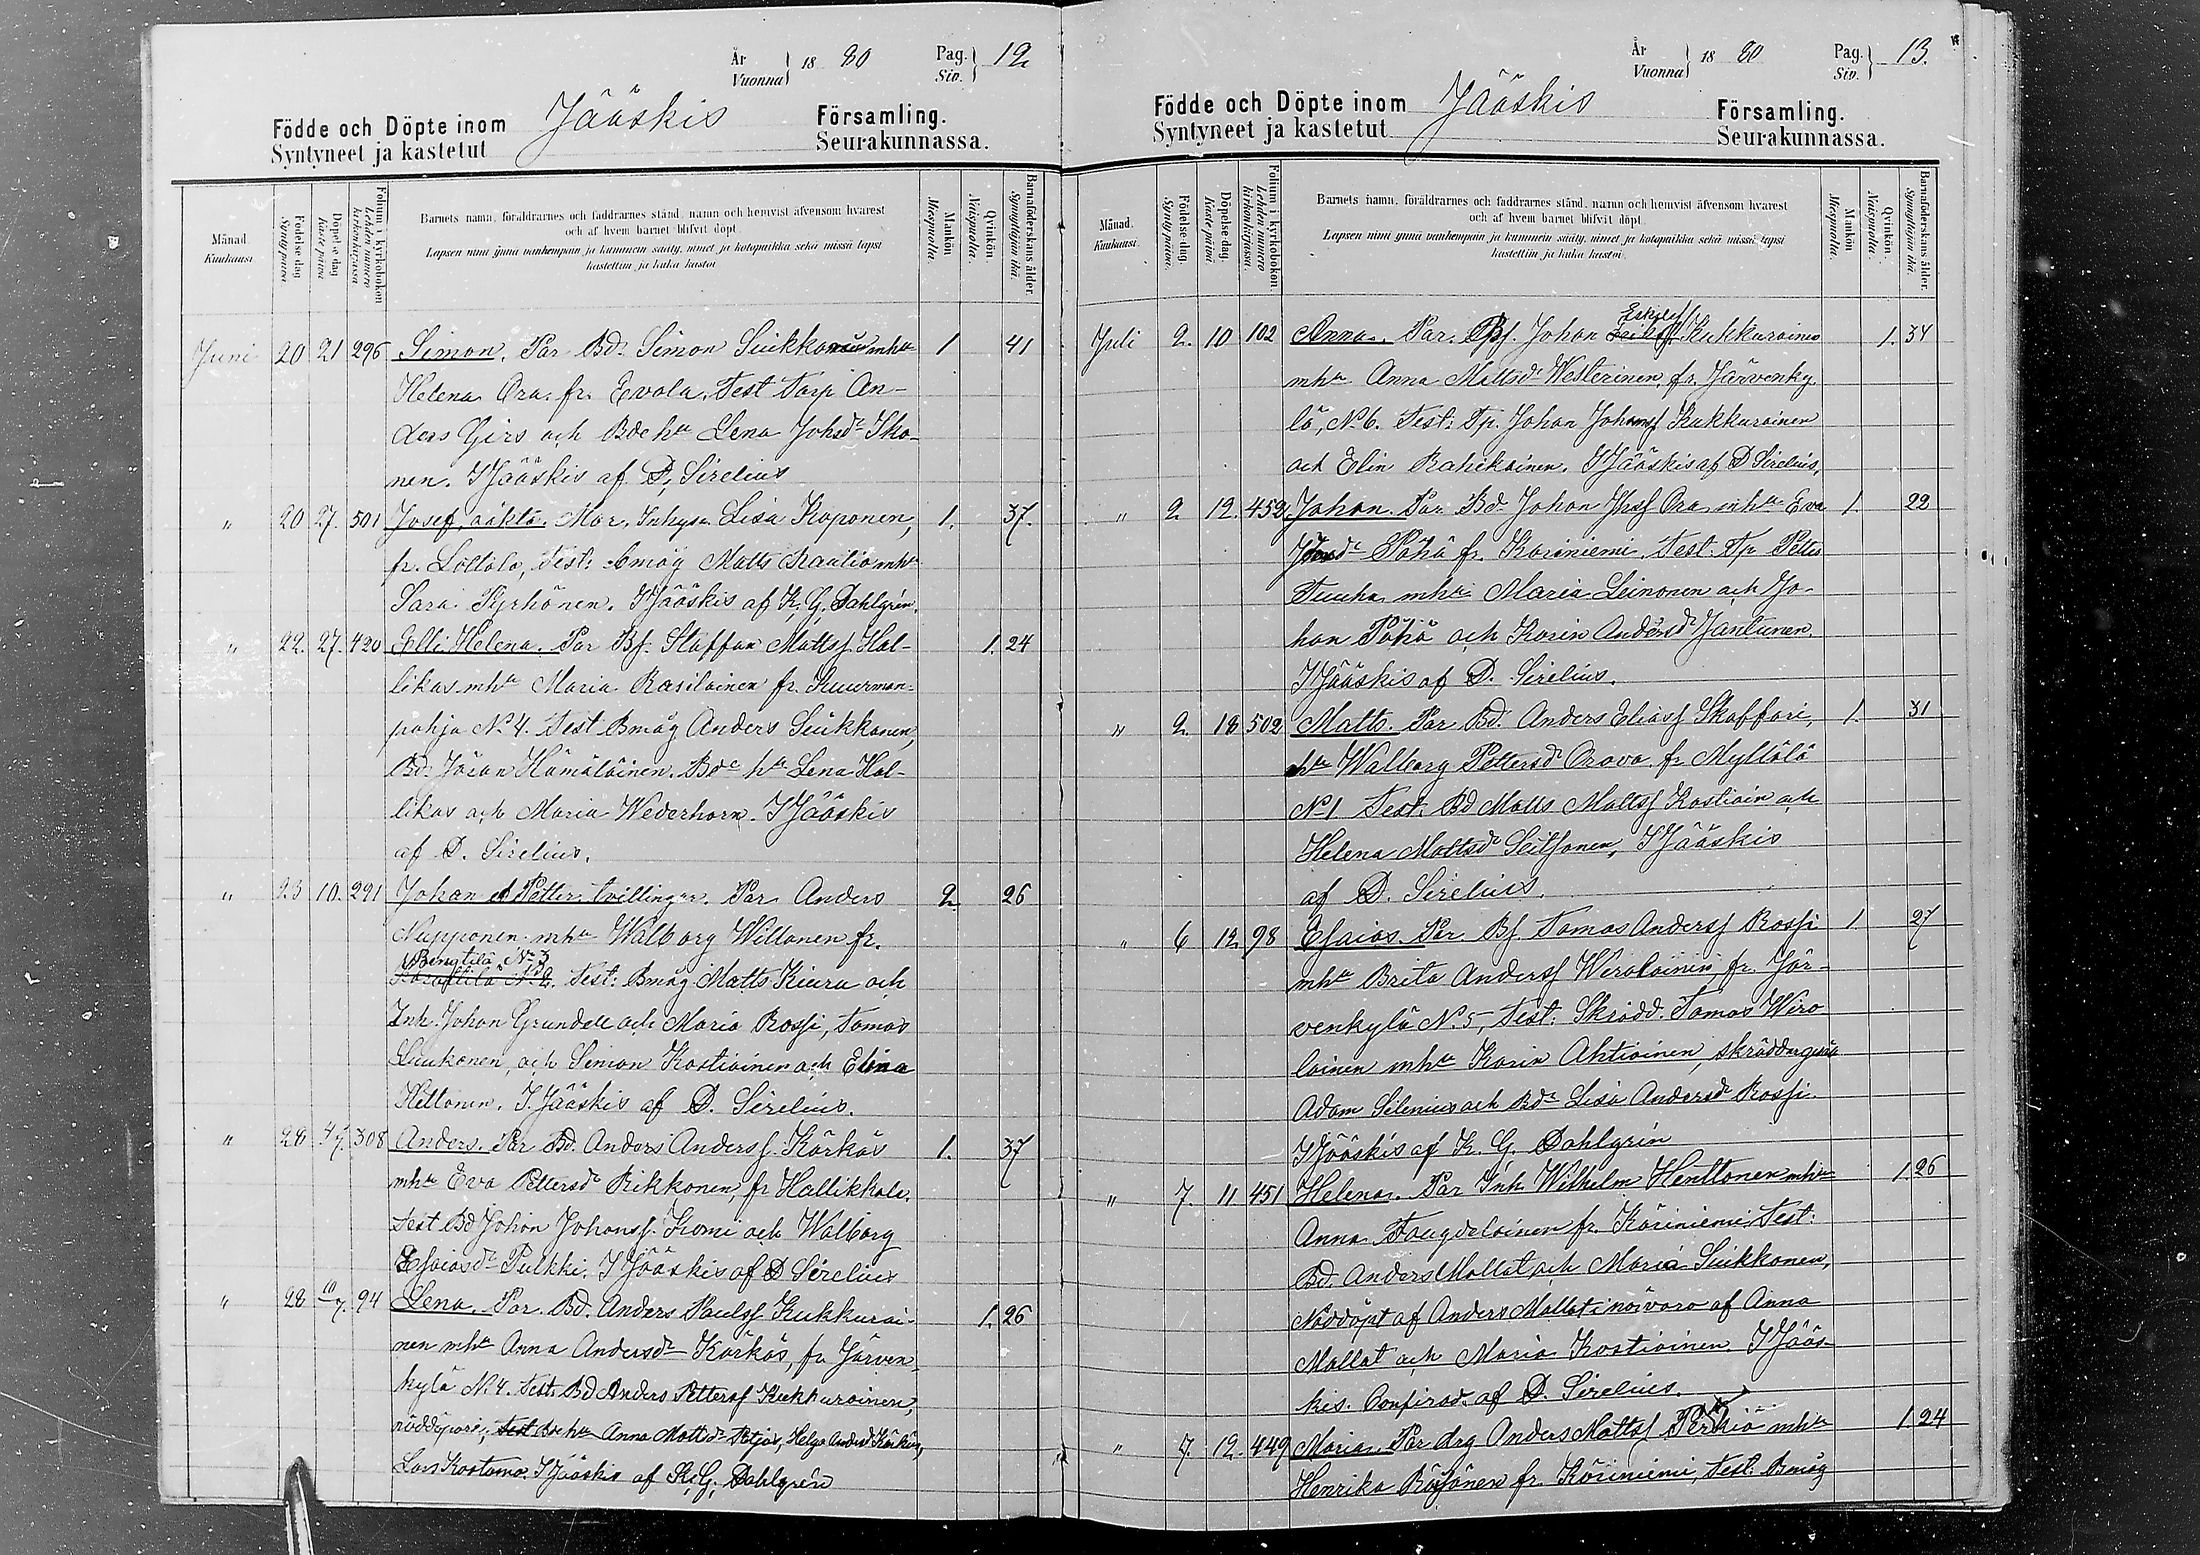 År
Vuonna } 18 80 Pag.
Siv. } 12
Födde och Döpte inom Jääskis Församling.
Syntyneet ja kastetut Seurakunnassa.
Månad.
Kuukausi.
Födelse dag
Synty päivä.
Döpelse dag
Kaste päivä.
Folium i kyrkoboken
Lehden numero kirkonkirjassa
Barnets namn, föräldrarnes och faddrarnes stånd, namn och hemvist äfvensom hvarest
och af hvem barnet blifvit döpt.
Lapsen nimi ynnä vanhempain ja kummein sääty, nimet ja kotopaikka sekä missä lapsi
kastettiin ja kuka kastoi.
Mankön.
Miespuolia.
Qvinkön.
Naispuolia.
Barnaföderskans ålder.
Synnyttäjän ikä.
Juni 20 21 296 Simon. Par Bd. Simon Siukkonen mhu 1 41
Helena Ora fr. Evola. Test Torp An-
ders Girs och Bde hu Lena Johsdr Sko-
nen. I Jääskis af D. Sirelius
" 20 27. 501 Josef, oäkta. Mor. Inhys. Lisa Koponen, 1. 37.
fr. Lottola, test: Bmåg Matts Rautio mhu
Sara Pyrhönen. I Jääskis af K. G. Dahlgrén.
" 22. 27. 420 Elli Helena. Par Bf. Staffan Mattsf Hal- 1. 24
likas mhu Maria Rasilainen fr. Kuurman-
pohja No 4. Test Bmåg Anders Siukkonen,
Bd. Jöran Hämäläinen. Bde hu Lena Hal-
likas och Maria Wederhorn. I Jääskis
af D. Sirelius.
" 23 10. 291 Johan et Petter, tvillingar. Par Anders 2 26
Nupponen mhu Walborg Willanen fr.
Bengtilä No 3
No 2. Test: Bmåg Matts Kiuru och
Inh. Johan Grundell och Maria Rossi, Tomas
Liukonen, och Simon Kostiainen och Elina
Hettonen. I Jääskis af D. Sirelius.
" 28 4/7. 308 Anders. Par Bd. Anders Andersf. Kärkäs 1. 37
mhu Eva Pettersdr Rikkonen, fr Hallikkala.
Test Bd Johan Johansf. Komi och Walborg
Esaiasdr Pulkki. I Jääskis af D Sirelius
" 28 10/7. 94 Lena. Par. Bd. Anders Paulsf Kukkurai- 1. 26
nen mhu Anna Andersdr Kärkäs, fr Järven-
kylä No 4. Test. Bd Anders Pettersf Kukkurainen,
Test Bde hu Anna Mattsdr Helga Andersdr Kärkäs,
Lars Kostamo. I Jääskis af K. G. Dahlgrén
År
Vuonna } 18 80 Pag.
Siv. } 13.
Födde och Döpte inom Jääskis Församling.
Syntyneet ja kastetut Seurakunnassa.
Månad.
Kuukausi.
Födelse dag.
Synty päivä.
Döpelse dag.
Kaste päivä.
Folium i kyrkoboken.
Lehden numero kirkonkirjassa.
Barnets namn, föräldrarnes och faddrarnes stånd, namn och hemvist äfvensom hvarest
och af hvem barnet blifvit döpt.
Lapsen nimi ynnä vanhempain ja kummein sääty, nimet ja kotopaikka sekä missä lapsi
kastettiin ja kuka kastoi.
Mankön.
Miespuolia.
Qvinkön.
Naispuolia.
Barnaföderskans ålder.
Synnyttäjän ikä.
Eskilsf
Juli 2. 10 102 Anna. Par. Bf. Johan Kukkurainen 1. 34
mhu Anna Mattsdr Westerinen, fr. Järvenky-
lä, No 6. Test: Tp. Johan Johansf Kukkurainen
och Elin Rahikainen, I Jääskis af D Sirelius.
" 2 12. 452 Johan. Par. Bd. Johan Jhsf Ora mhu Eva 1. 22
Pöhä fr. Koriniemi. Test: Tp Petter
Tuuha mhu Maria Leinonen och Jo-
han Pöhö och Karin Andersdr Jantunen.
I Jääskis af D. Sirelius.
" 2. 18 502 Matts. Par Bd. Anders Eliasf Skaffari, 1. 31
hu Walborg Pettersdr Orava fr Myllölä
No 1 Test: Bd Matts Mattsf Kostiain och
Helena Mattsdr Seitsonen, I Jääskis
af D. Sirelius.
" 6 12. 98 Esaias. Par. Bf. Tomas Andersf Rossi 1. 27
mhu Brita Andersf Wirolainen, fr. Jär-
venkylä No 5, Test: Skrädd. Tomas Wiro-
lainen mhu Karin Ahtiainen, skräddargesäll
Adam Silenius och Bdr Lisa Andersdr Rossi.
I Jääskis af K. G. Dahlgrén
" 7. 11. 451 Helena. Par Inh Wilhelm Henttonen mhu 1. 26
Anna fr. Koriniemi. Test:
Bd. Anders Mallat och Maria Siukkonen,
Nöddöpt af Anders Mallat i närvaro af Anna
Mallat och Maria Kostiainen. I Jääs-
kis. Confirad. af D. Sirelius.
" 7. 12. 449 Maria. Par drg Anders Mattsf Perkiö mhu 1 24
Henrika Räsänen fr. Koriniemi, Test: Bmåg